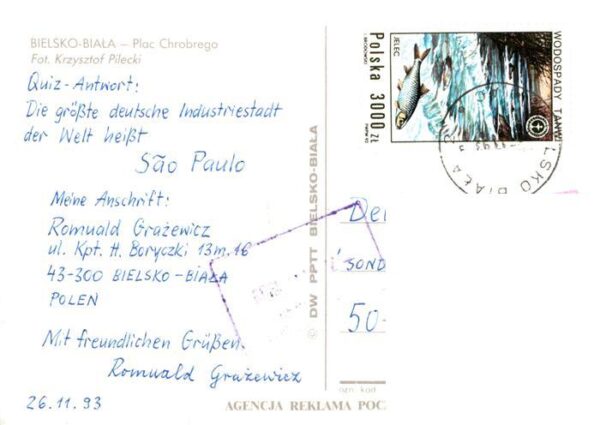 BIELSKO-BIAŁA – Plac Chrobrego
Fot. Krzysztof Pilecki
Quiz-Antwort:
Die größte deutsche Industriestadt
der Welt heißt
São Paulo
Meine Anschrift:
Romuald Grażewicz
ul. Kpt. H. Boryczki 13m.16
43-300 BIELSKO-BIAŁA
POLEN
Mit freundlichen Grüßen
Romuald Grażewicz
26.11.93
© DW PPTT BIELSKO-BIAŁA
WODOSPADY TANWI
JELEC
Polska 3000 ZŁ
LSKO BIAŁA
SOND
50-
AGENCJA REKLAMA POC
ozn. kod